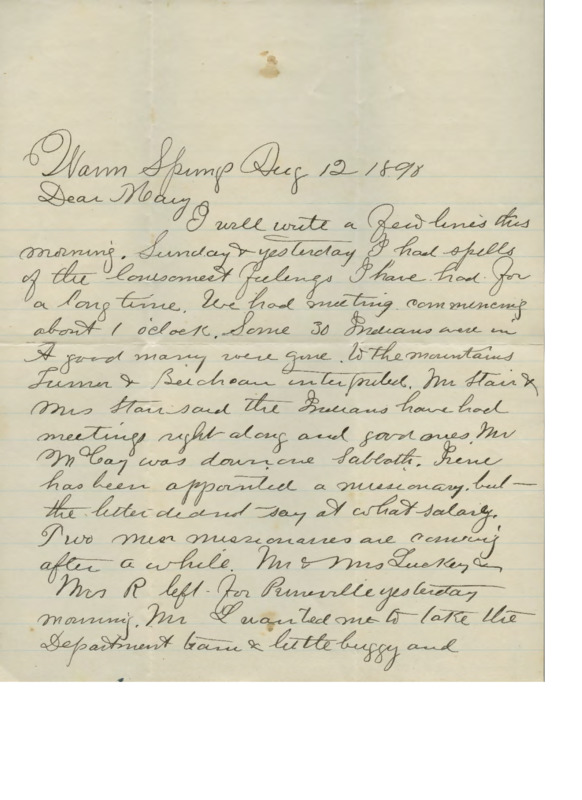 Warm Springs Aug 12 1898
Dear Mary
I will write a few lines this
morning. Sunday & yesterday I had spells
of the lonesomest feelings I have had for
a long time. We had meeting commencing
about 1 oclock. Some 30 Indians were in
A good many were gone to the mountains
Turner & interpreted. Mr Stair &
Mrs Stair said the Indians have had
meetings right along and good ones. Mr
McCay was down one Sabbath. Irene
has been appointed a missionary. but
the letter did not say at what salary.
Two missionaries are coming
after a while. Mr & Mrs Luckey &
Mrs R left for Prineville yesterday
morning. Mr L wanted me to take the
Department team & little buggy and